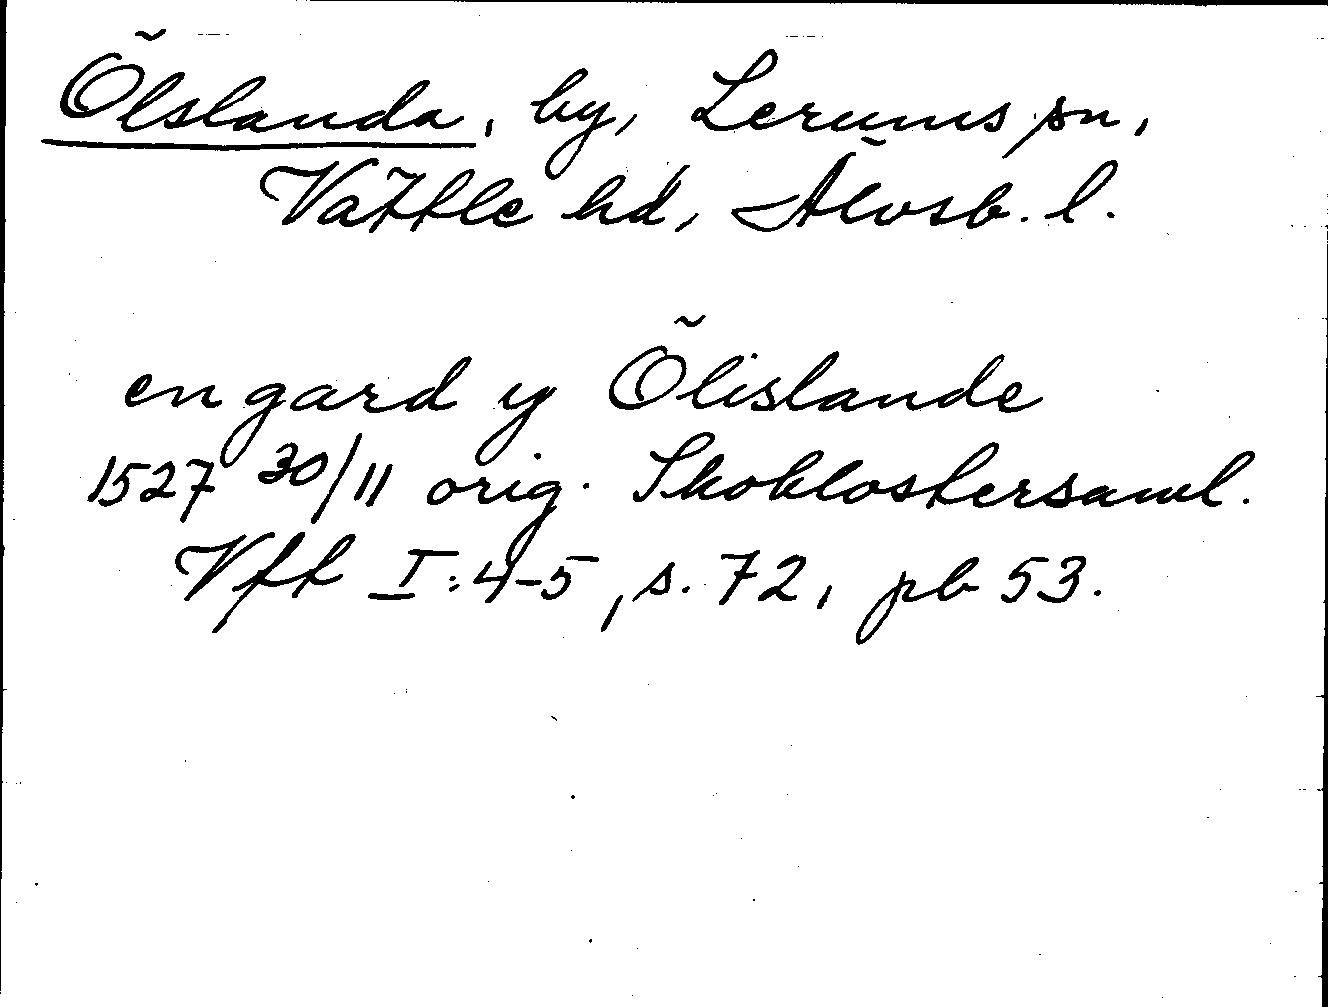 Ölslanda, by, Lerums sn,
Vättle hd, Älvsb. l.
en gard y Ölislande
1527 30/11 orig. Skoklostersaml.
Vft I:4-5, s. 72, pb 53.